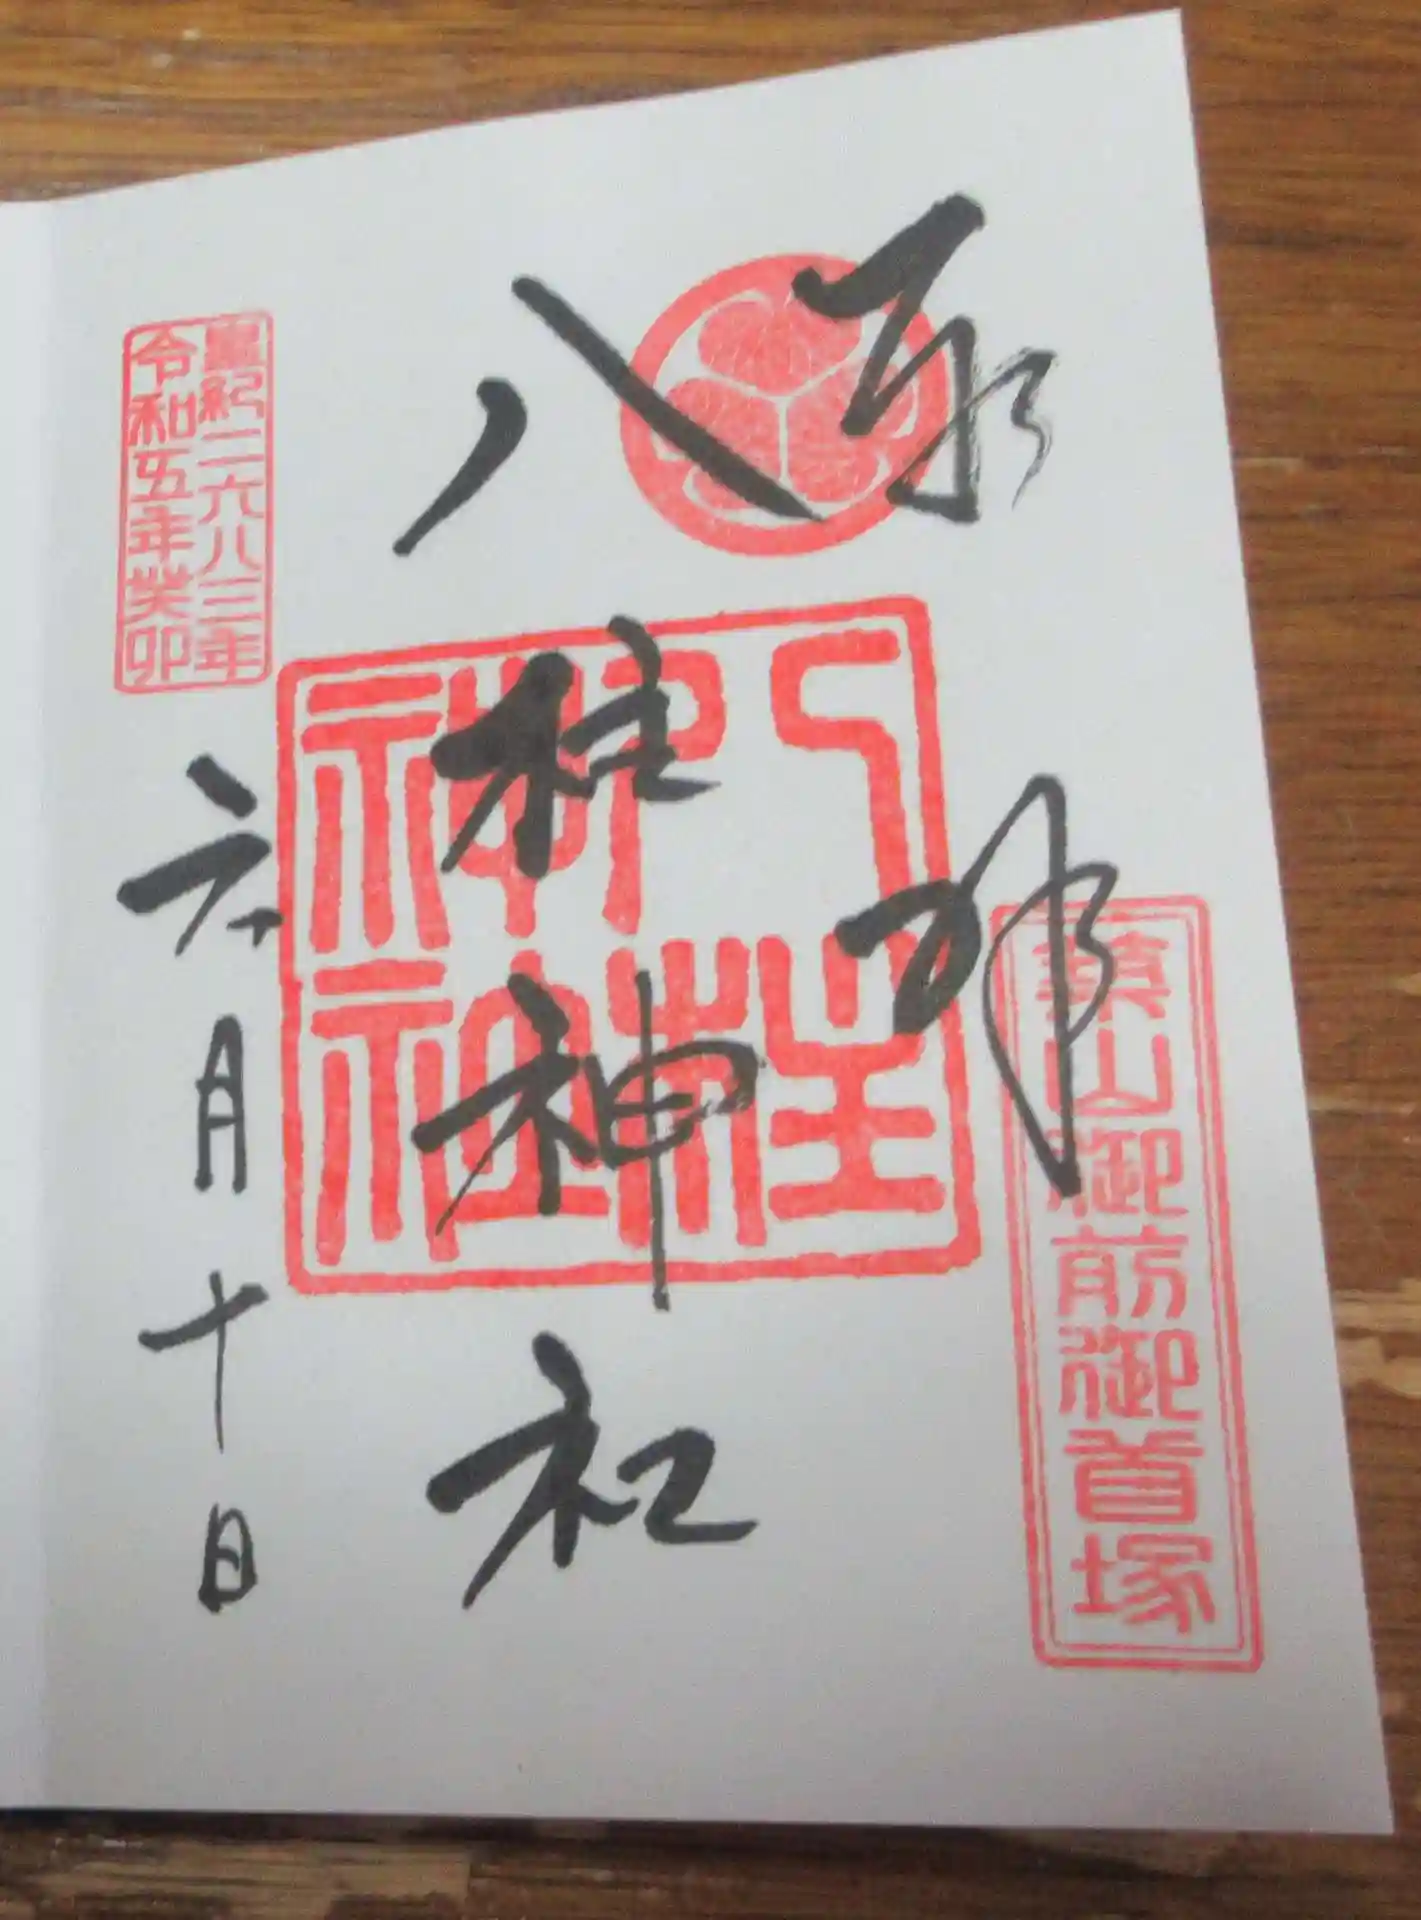 奉拝
築山御前御首塚
八柱神社
八柱
神社
皇紀二六八三年
令和五年癸卯
六月十日